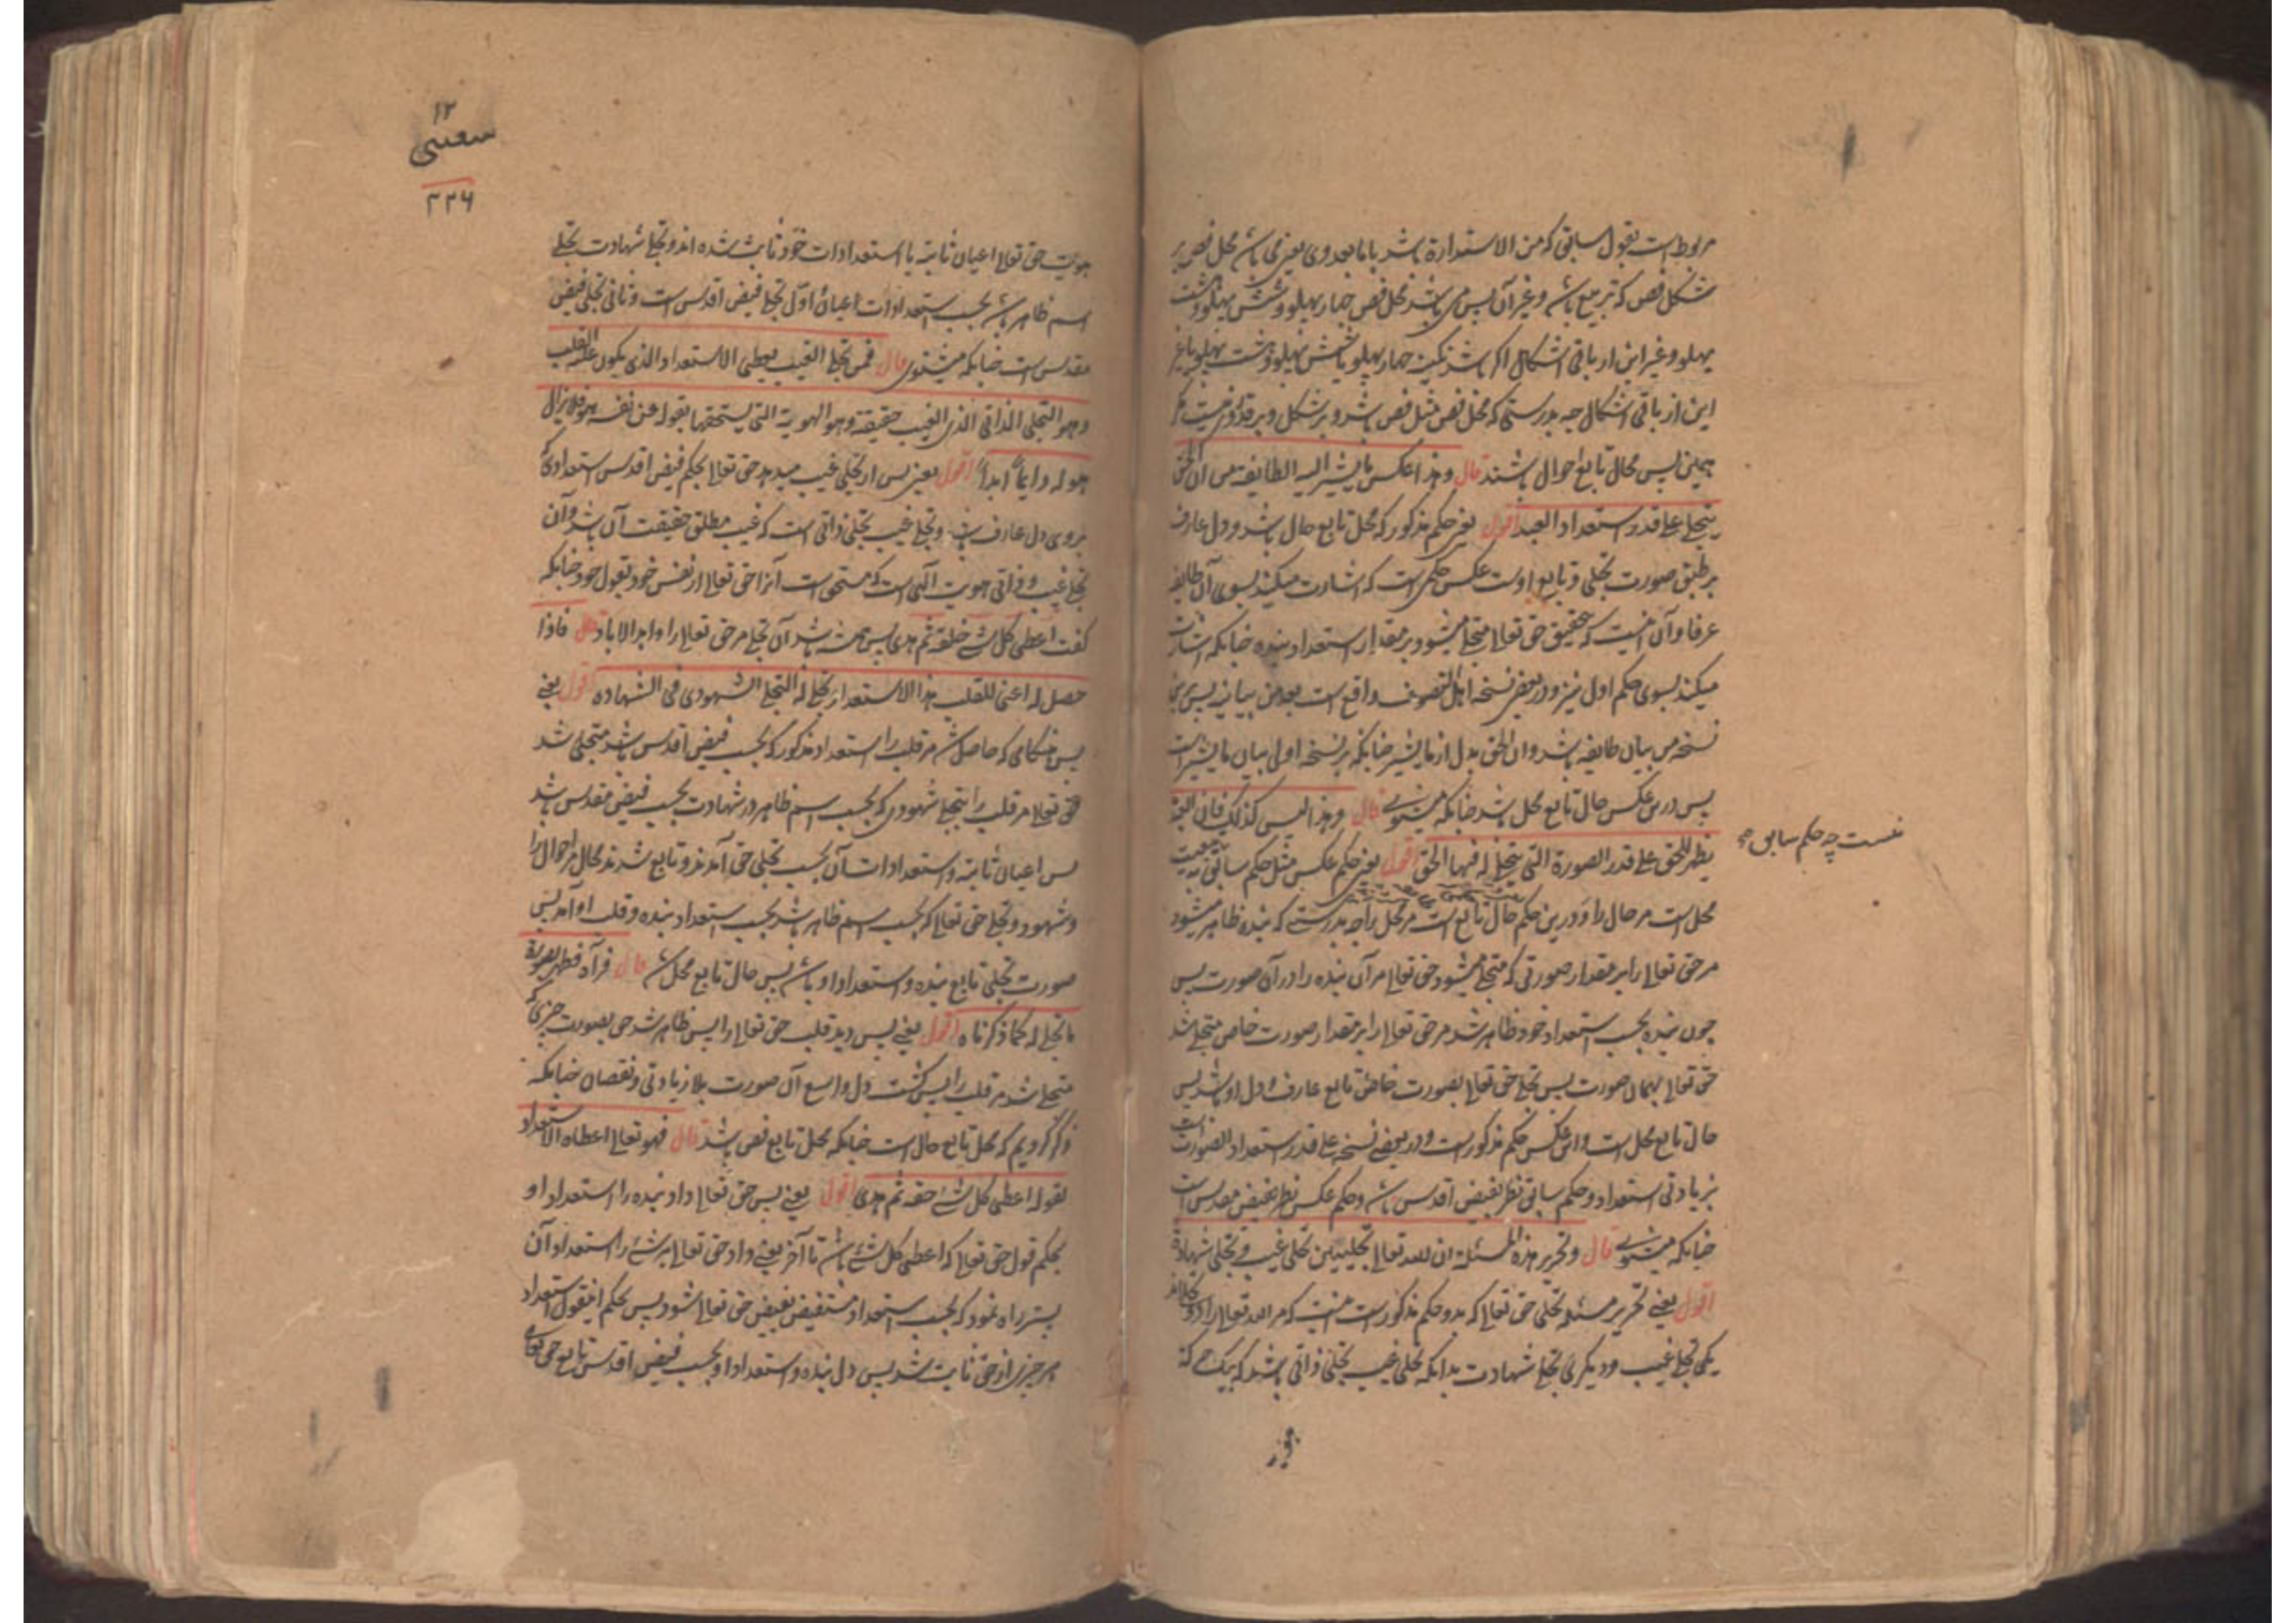 مربوط است بقول سابق که من الاستدارة باشد باما بعد وی یعنی می باشد محل فص بر
شکل فص که تربیع باشد و غیر آن پس می باشد محل فص چهار پهلو و شش پهلو و هشت
پهلو و غیر این از باقی اشکال اگر باشد نگینه چهار پهلو یا شش پهلو و هشت پهلو یا غیر
این از باقی اشکال چه بدرستی که محل فص مثل فص باشد و بر شکل و بر قدر وی نیست مگر
همچنین پس محال تابع احوال باشند قال وهذا عکس ما یشیر الیه الطایفة من ان الحق
یتجلی علی قدر استعداد العبد اقول یعنی حکم مذکور که محل تابع حال باشد و دل عارف
بر طبق صورت تجلی و تابع اوست عکس حکمی است که اشارت میکند بسوی آن طایفه
عرفا و آن اینست که بتحقیق حق تعالی متجلی میشود بر مقدار استعداد بنده چنانکه اشارت
میکند بسوی حکم اول نیز و در بعضی نسخه اهل التصوف واقع است بعد من بیانیه پس برین
نسخه من بیان طایفه باشد و ان الحق بدل از ما یشیر چنانکه بر نسخه اولی بیان ما یشیر است
پس درین عکس حال تابع محل باشد چنانکه میشنوی قال وهذا لیس کذلک فان العبد
یظهر للحق علی قدر الصورة التی یتجلی له فیها الحق اقول یعنی حکم عکس مثل حکم سابق
نیست چه حکم سابق
محل است مر حال را و درین حکم حال تابع است مر محل را چه بدرستی که بنده ظاهر میشود
مر حق تعالی را بر مقدار صورتی که متجلی میشود حق تعالی مر آن بنده را در آن صورت پس
چون بنده بحسب استعداد خود ظاهر شد مر حق تعالی را بر مقدار صورت خاص متجلی شد
حق تعالی بهمان صورت پس تجلی حق تعالی بصورت خاص تابع عارف و دل او باشد پس
حال تابع محل است و این عکس حکم مذکور است و در بعضی نسخه علی قدر استعداد الصورت است
بزیادتی استعداد و حکم سابق نظر بفیض اقدس باشد و حکم عکس نظر بفیض مقدس است
چنانکه میشنوی قال وتحریر هذه المسئلة ان لله تعالی تجلیین تجلی غیب و تجلی شهادة
اقول یعنی تحریر مسئله تجلی حق تعالی که بدو حکم مذکور است اینست که مر الله تعالی را دو تجلی اند
یکی تجلی غیب و دیگری تجلی شهادت بدانکه تجلی غیب تجلی ذاتی باشد که بیک حکم
۱۲
شعیبی
۲۲۶
هویت حق تعالی اعیان ثابته با استعدادات خود ثابت شده اند و تجلی شهادت تجلی
اسم ظاهر باشد بحسب استعدادات اعیان اول تجلی فیض اقدس است و ثانی تجلی فیض
مقدس است چنانکه میشنوی قال فمن تجلی الغیب یعطی الاستعداد الذی یکون علیه القلب
وهو التجلی الذاتی الذی الغیب حقیقته وهو الهویة التی یستحقها بقوله عن نفسه هو فلا یزال
هو له دایما ابدا اقول یعنی پس از تجلی غیب میدهد حق تعالی بحکم فیض اقدس استعدادی که
بروی دل عارف باشد و تجلی غیب تجلی ذاتی است که غیب مطلق حقیقت آن باشد و آن
تجلی غیب و ذاتی هویت الهی است که مستحق است آنرا حق تعالی از نفس خود بقول خود چنانکه
گفت اعطی کل شیء خلقه ثم هدی پس همیشه باشد آن تجلی مر حق تعالی را و ابد الاباد قال فاذا
حصل له اعنی للقلب هذا الاستعداد تجلی له التجلی الشهودی فی الشهادة اقول یعنی
پس هنگامی که حاصل شد مر قلب را استعداد مذکور که بحسب فیض اقدس باشد متجلی شد
حق تعالی مر قلب را بتجلی شهودی که بحسب اسم ظاهر در شهادت بحسب فیض مقدس باشد
پس اعیان ثابته و استعدادات آن بحسب تجلی حق آمدند و تابع شدند محال مر احوال را
و شهود و تجلی حق تعالی که بحسب اسم ظاهر باشد بحسب استعداد بنده و قلب او آمد پس
صورت تجلی تابع بنده و استعداد او باشد پس حال تابع محل شد قال فرآه فظهر بصورة
ما تجلی له کما ذکرناه اقول یعنی پس دید قلب حق تعالی را پس ظاهر شد حق بصورت چیزی که
متجلی شد مر قلب را پس گشت دل واسع آن صورت بلا زیادتی و نقصان چنانکه
ذکر کردیم که محل تابع حال است چنانکه محل تابع فص باشد قال فهو تعالی اعطاه الاستعداد
بقوله اعطی کل شیء خلقه ثم هدی اقول یعنی پس حق تعالی داد بنده را استعداد او
بحکم قول حق تعالی که اعطی کل شیء باشد تا آخر یعنی داد حق تعالی هر شیء را استعداد آن
پستر راه نمود که بحسب استعداد مستفیض بفیض حق تعالی شود پس بحکم این قول استعداد
هر چیزی از حق ثابت شد پس دل بنده و استعداد او بحسب فیض اقدس تابع حق تعالی